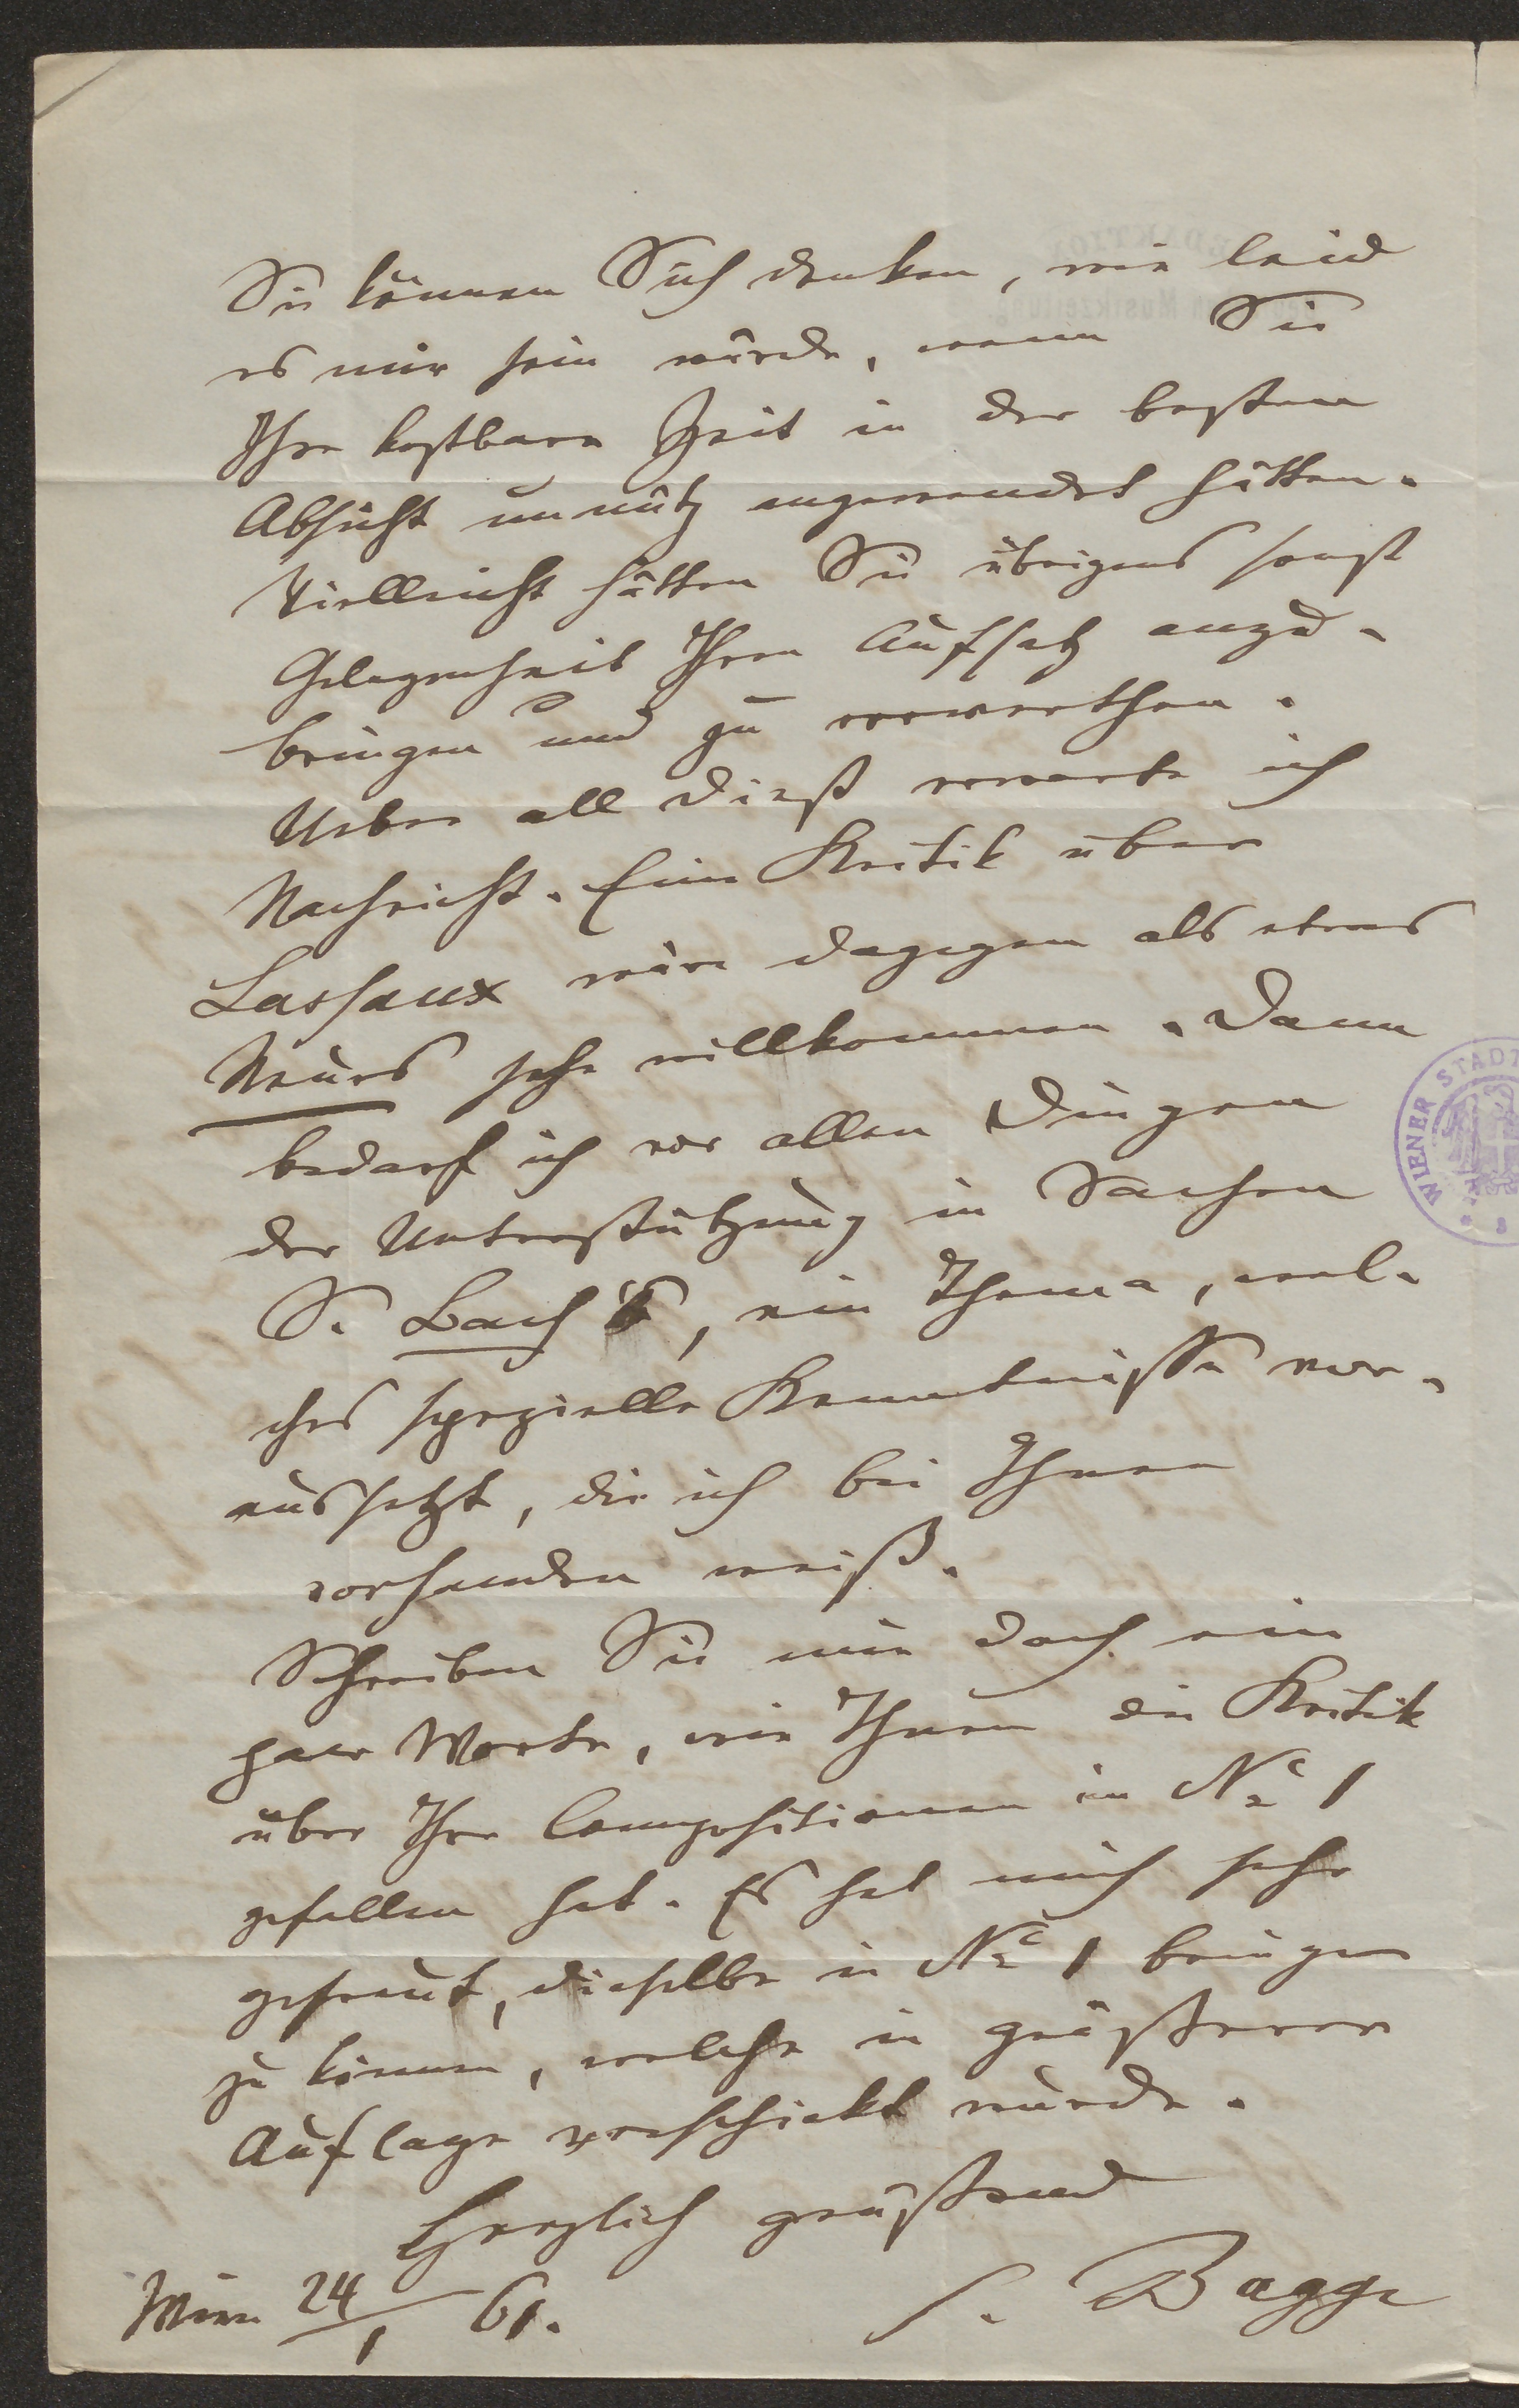 Sie können Sich denken, wie leid
es mir sein würde, wenn Sie
Ihre kostbare Zeit in der besten
Absicht unnütz angewendet hätten.
Vielleicht hätten Sie übrigens sonst
Gelegenheit Ihren Aufsatz anzu-
bringen und zu verwerthen.
Ueber all dieß erwarte ich
Nachricht. Eine Kritik über
Lassaux wäre dagegen als etwas
Neues sehr willkommen. Dann
bedarf ich vor allen Dingen
der Unterstützung in Sachen
S. Bach's, ein Thema, wel-
ches spezielle Kenntnisse vor-
aussetzt, die ich bei Ihnen
vorhanden weiß.
Schreiben Sie mir doch ein
paar Worte, wie Ihnen die Kritik
über Ihre Compositionen in No 1
gefallen hat. Es hat mich sehr
gefreut, dieselbe in No 1 bringen
zu können, welche in größerer
Auflage verschickt wurde.
Herzlich grüßend
Wien 24/1 61. S. Bagge
WIENER STADT